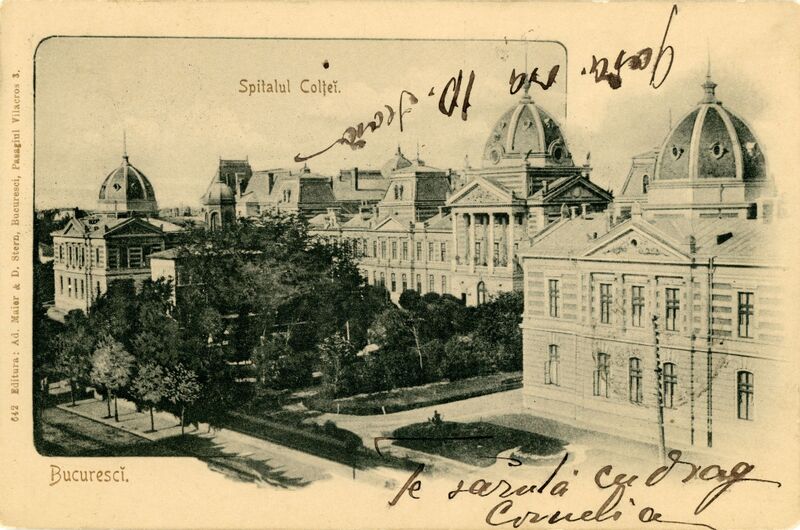 Spitalul Colţeĭ.
642 Editura: Ad. Maier & D. Stern, Bucuresci, Pasagiul Vilacros 3.
Bucurescĭ.
te sărută cu drag
Cornelia